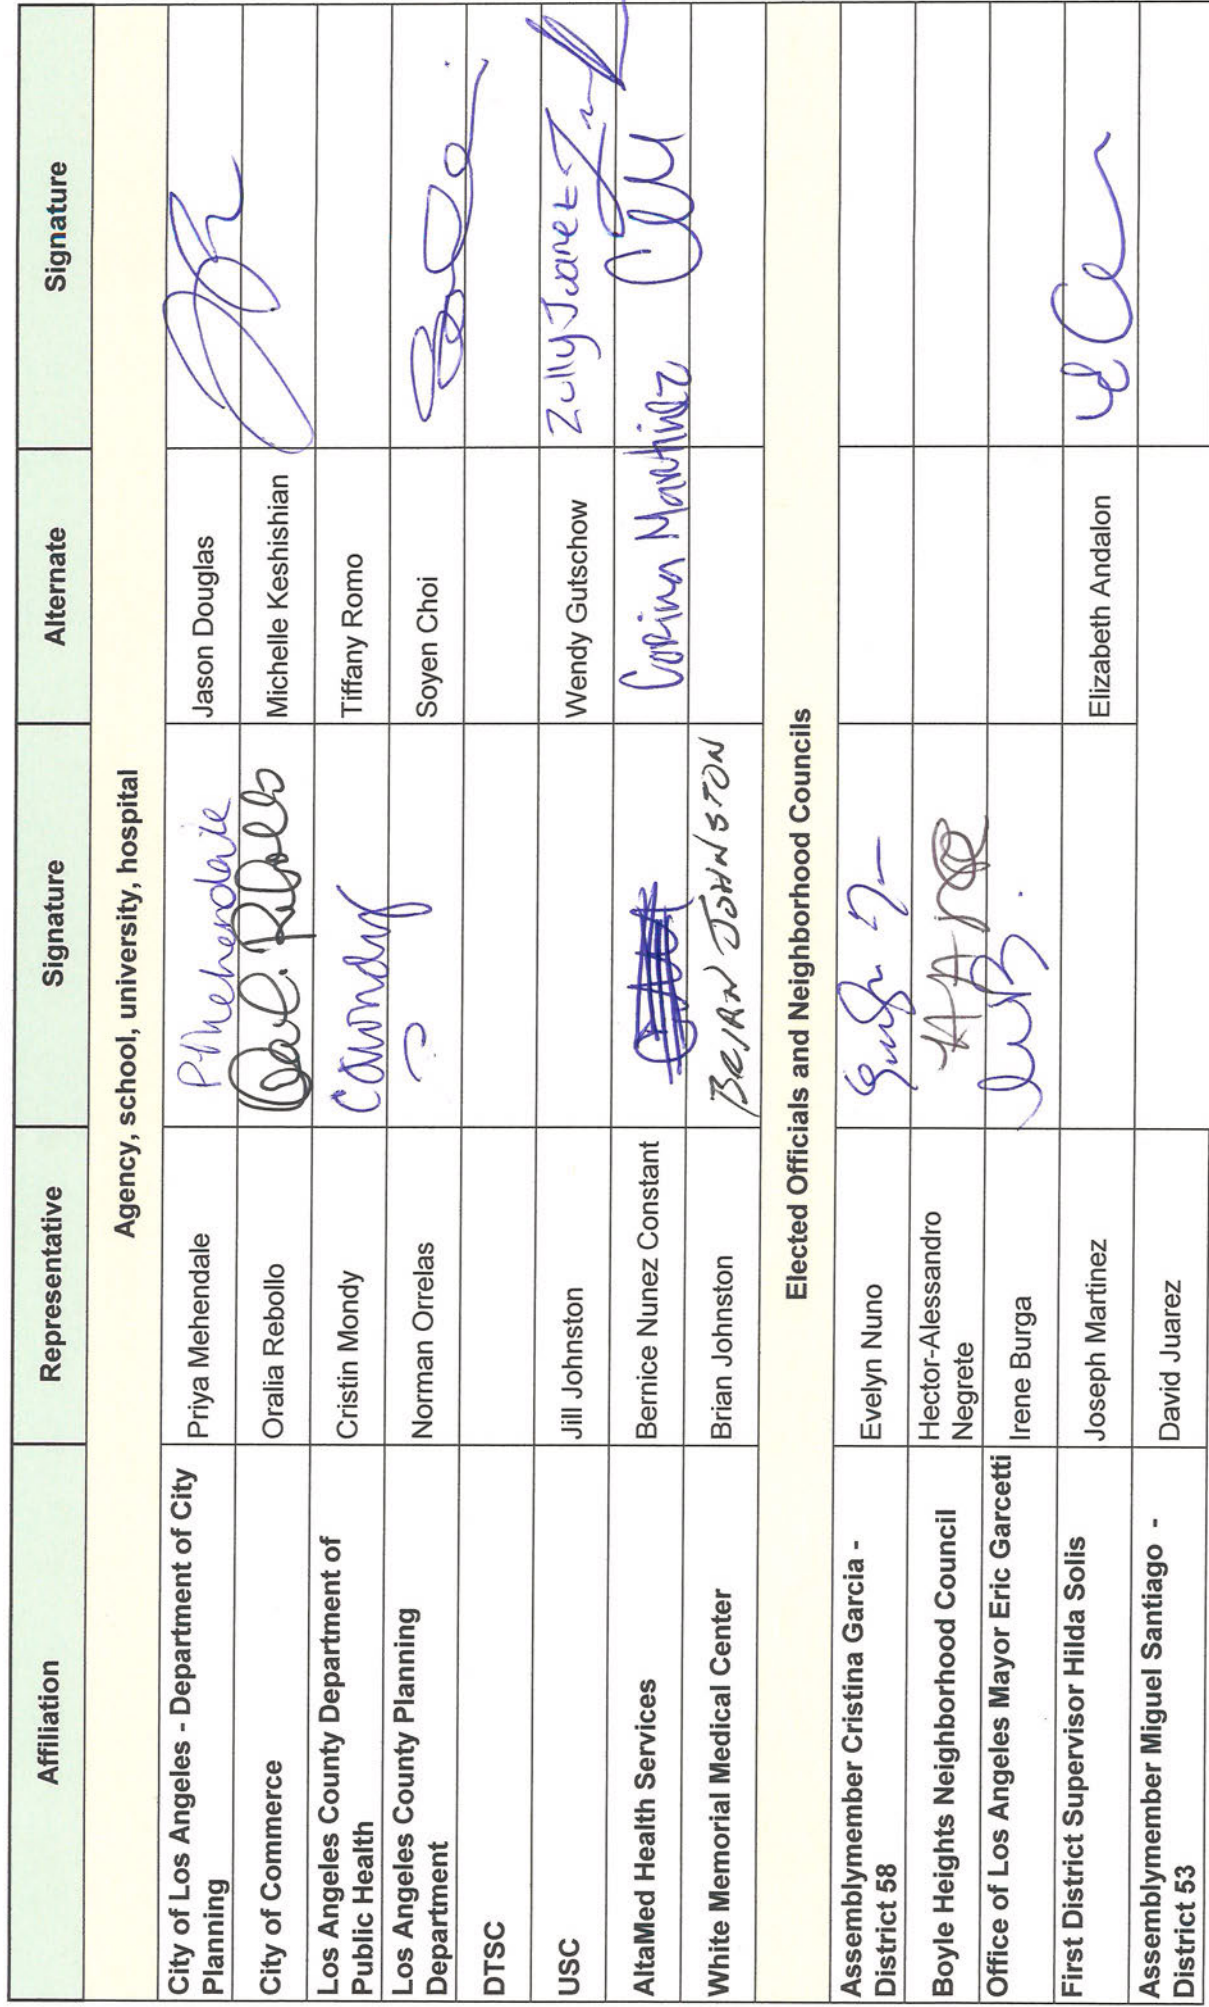 Affiliation Representative Signature Alternate Signature
Agency, school, university, hospital
City of Los Angeles - Department of City Priya Mehendale PMehendale Jason Douglas
Planning
City of Commerce Oralia Rebollo Oral. Rebollo Michelle Keshishian
Los Angeles County Department of Cristin Mondy Tiffany Romo
Public Health
Los Angeles County Planning Norman Orrelas Soyen Choi
Department
DTSC
USC Jill Johnston Wendy Gutschow Zully Juarez
AltaMed Health Services Bernice Nunez Constant Corina Martinez
White Memorial Medical Center Brian Johnston BRIAN JOHNSTON
Elected Officials and Neighborhood Councils
Assemblymember Cristina Garcia - Evelyn Nuno
District 58
Boyle Heights Neighborhood Council Hector-Alessandro
Negrete
Office of Los Angeles Mayor Eric Garcetti Irene Burga
First District Supervisor Hilda Solis Joseph Martinez Elizabeth Andalon
Assemblymember Miguel Santiago - David Juarez
District 53